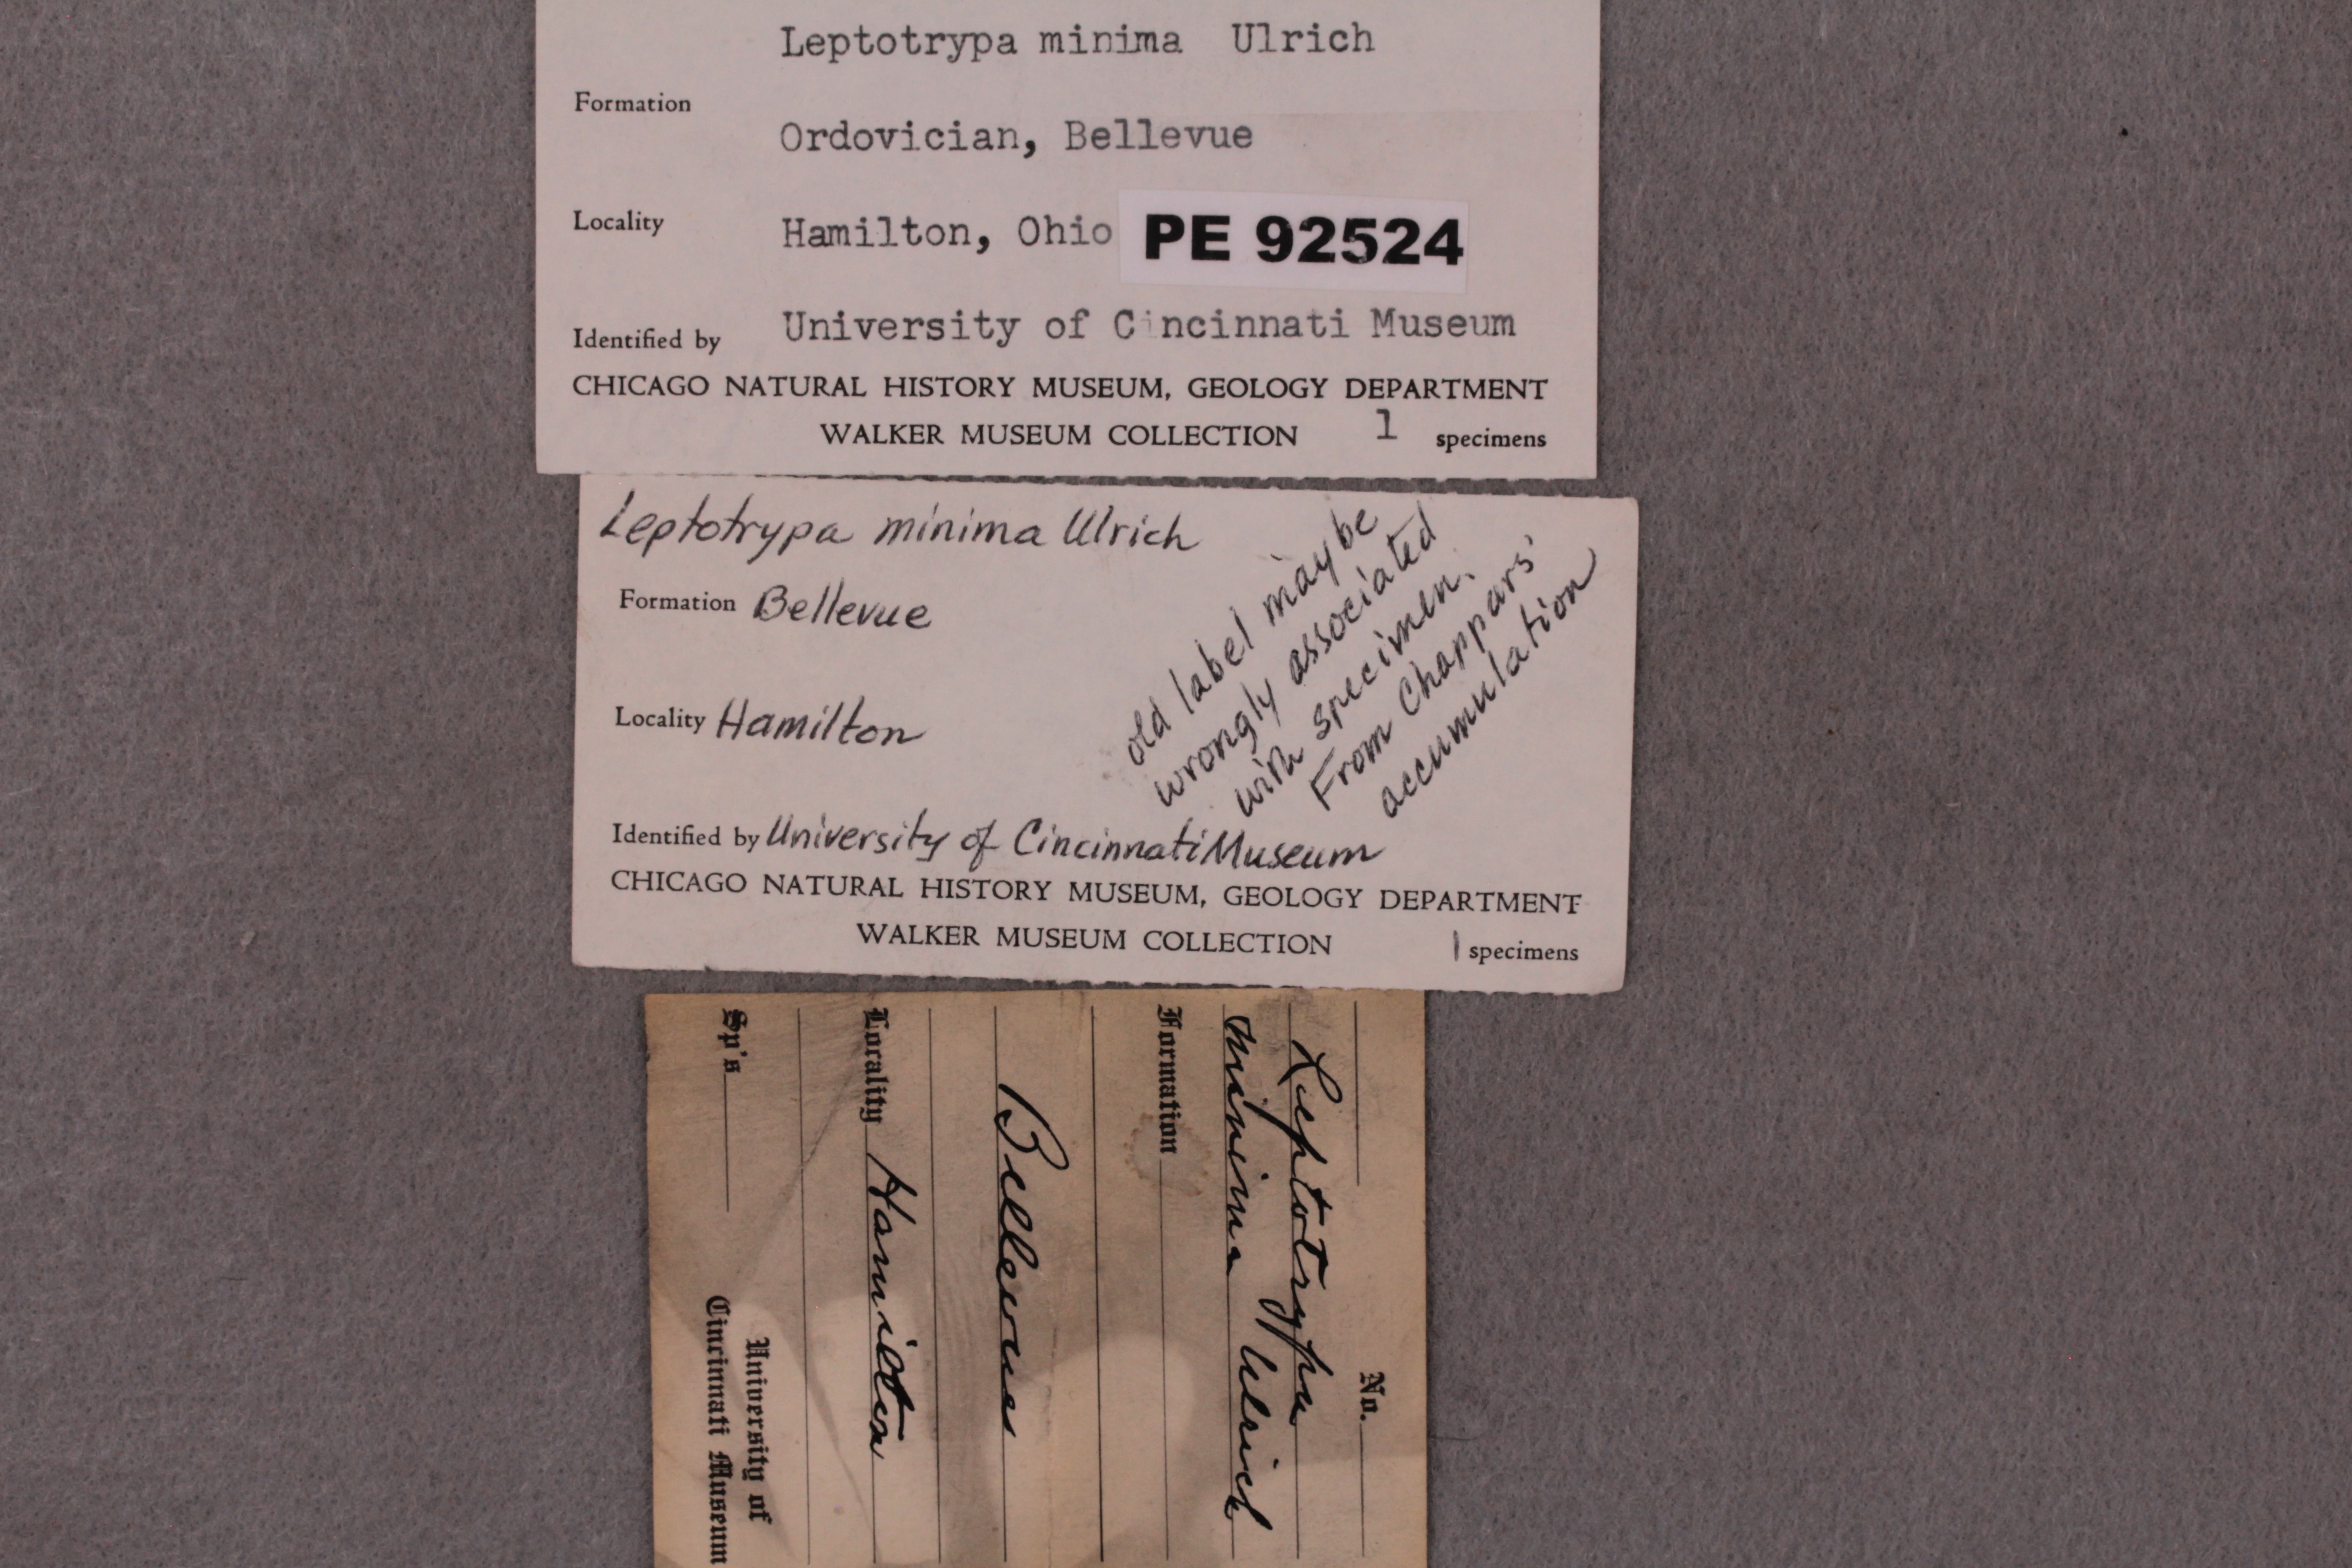 Leptotrypa minima Ulrich
Formation
Ordovician, Bellevue
Locality Hamilton, Ohio PE 92524
Identified by University of Cincinnati Museum
CHICAGO NATURAL HISTORY MUSEUM, GEOLOGY DEPARTMENT
WALKER MUSEUM COLLECTION 1 specimens
Leptotrypa minima Ulrich
Formation Bellevue
Locality Hamilton
old label may be
wrongly associated
with specimen.
From Chappars'
accumulation
Identified by University of Cincinnati Museum
CHICAGO NATURAL HISTORY MUSEUM, GEOLOGY DEPARTMENT
WALKER MUSEUM COLLECTION 1 specimens
No.
Leptotrypa
minima Ulrich
Formation
Bellevue
Locality Hamilton
University of
Sp's Cincinnati Museum